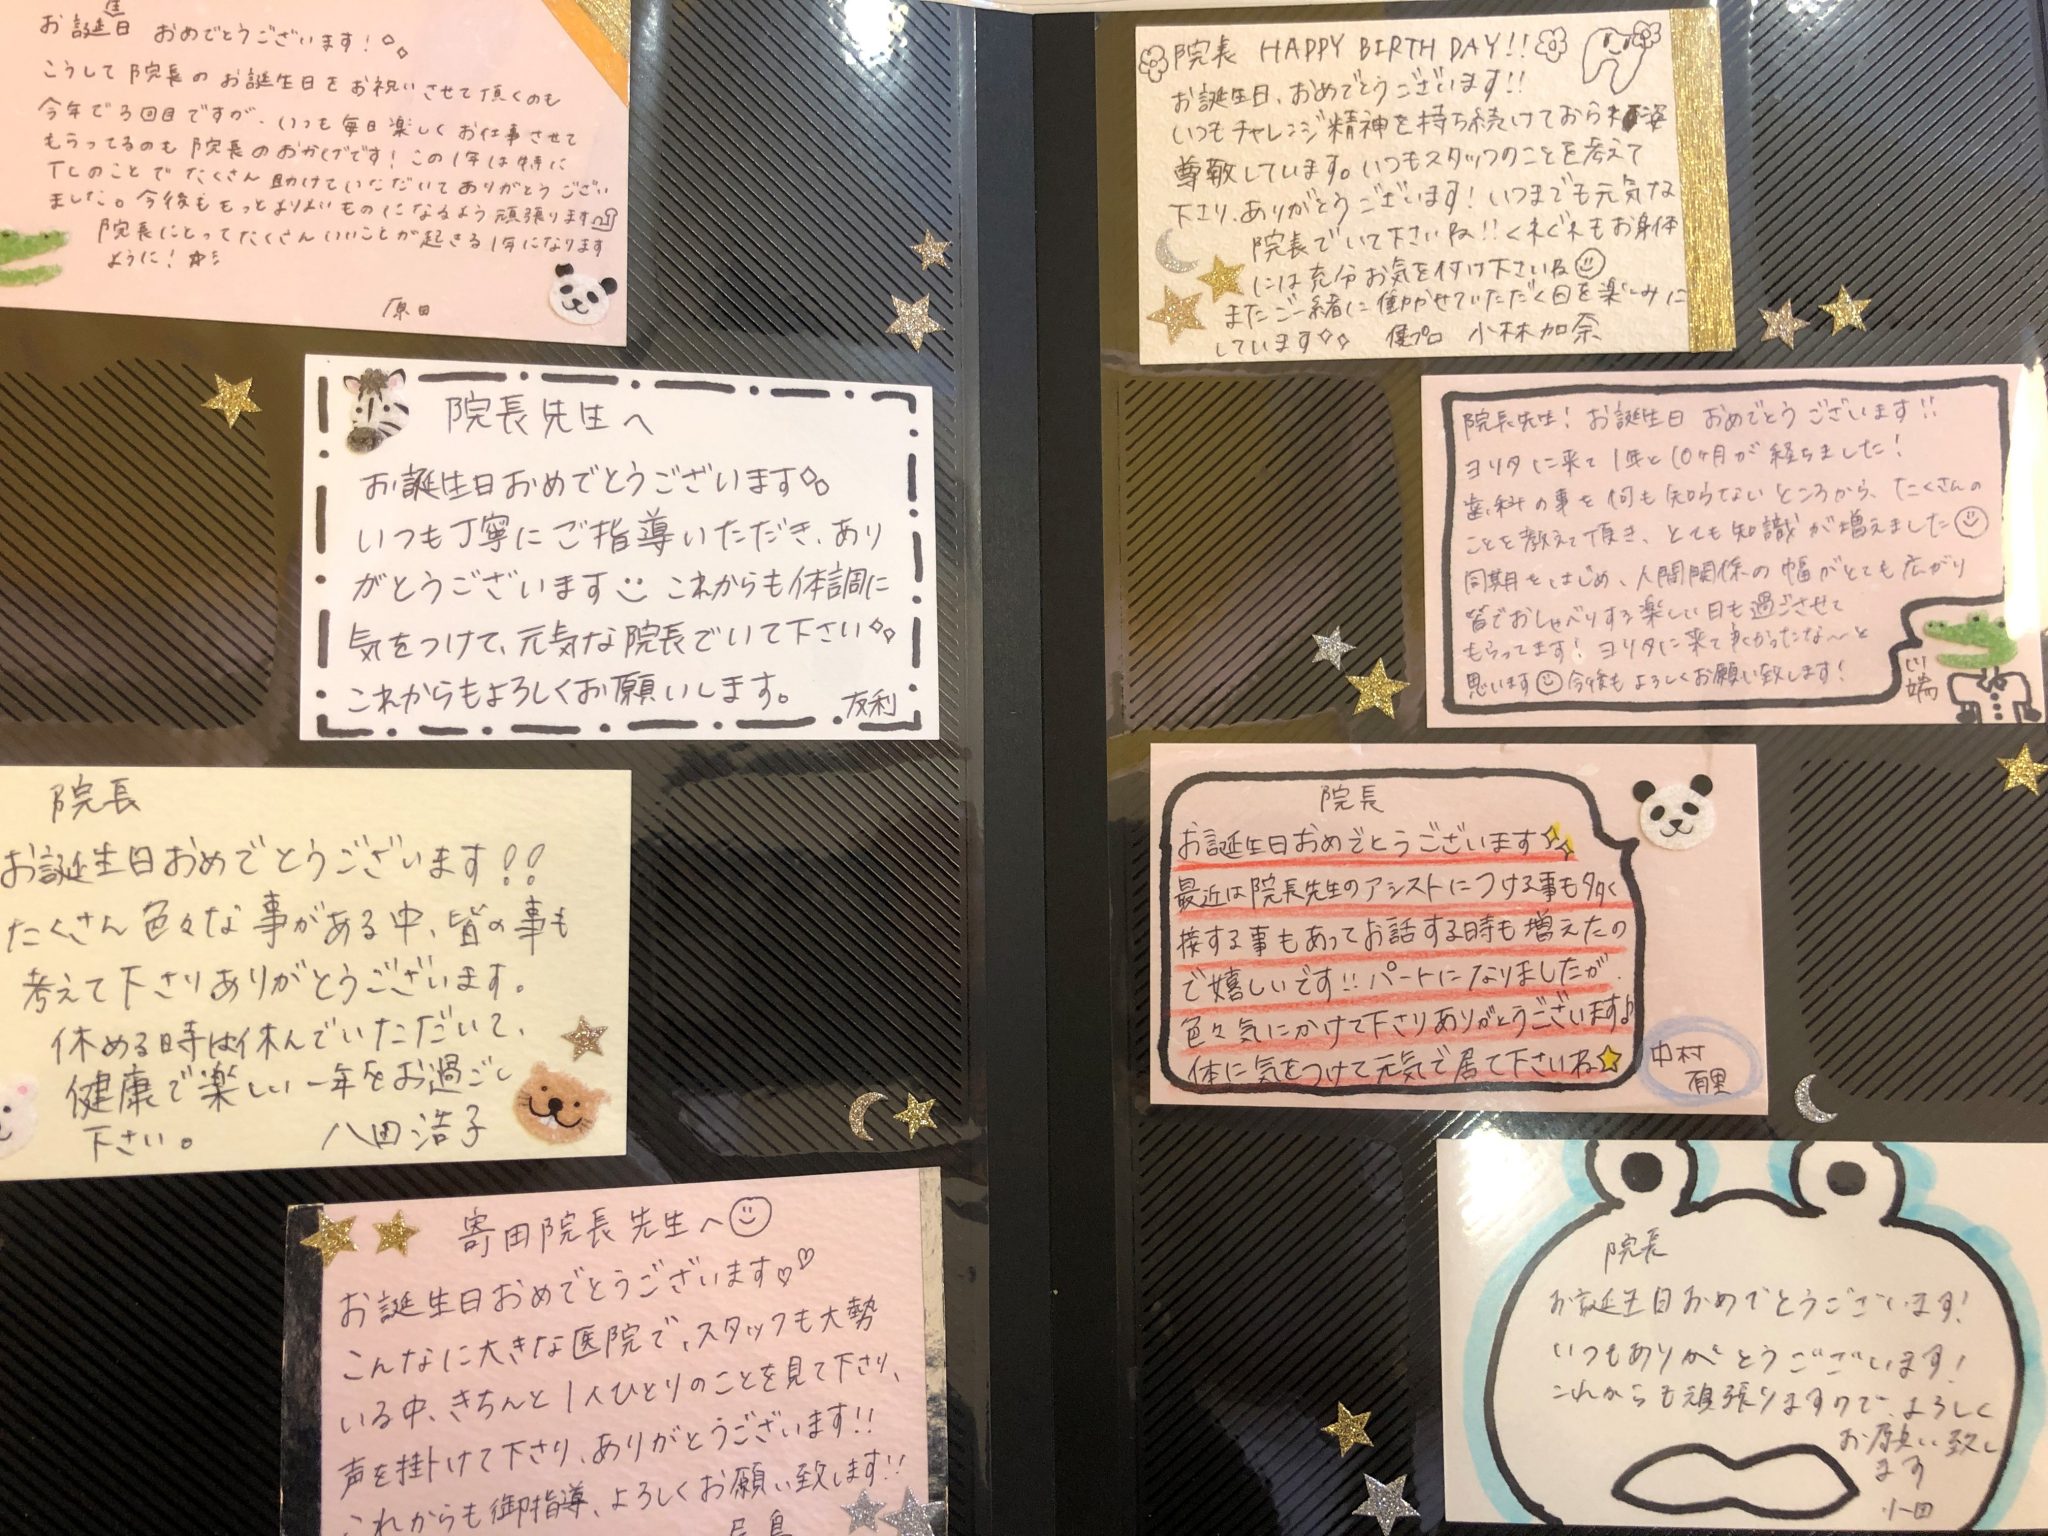 お誕生日 おめでとうございます!
こうして院長のお誕生日をお祝いさせて頂くのも
今年で3回目ですが、いつも毎日楽しくお仕事させて
もらってるのも院長のおかげです! この1年は特に
TCのことでたくさん助けていただいてありがとうござい
ました。今後ももっとよりよいものになるよう頑張ります
院長にとってたくさんいいことが起きる1年になります
ように!
原田
院長先生へ
お誕生日おめでとうございます
いつも丁寧にご指導いただき、あり
がとうございます これからも体調に
気をつけて、元気な院長でいて下さい
これからもよろしくお願いします。
友利
院長
お誕生日おめでとうございます!!
たくさん色々な事がある中、皆の事も
考えて下さりありがとうございます。
休める時は休んでいただいて、
健康で楽しい一年をお過ごし
下さい。 八田浩子
寄田院長先生へ
お誕生日おめでとうございます♡♡
こんなに大きな医院で、スタッフも大勢
いる中、きちんと1人ひとりのことを見て下さり、
声を掛けて下さり、ありがとうございます!!
これからも御指導、よろしくお願い致します!!
院長 HAPPY BIRTHDAY!!
お誕生日、おめでとうございます!!
いつもチャレンジ精神を持ち続けておられ姿
尊敬しています。いつもスタッフのことを考えて
下さり、ありがとうございます! いつまでも元気な
院長でいて下さいね!! くれぐれもお身体
には充分お気を付け下さいね
またご一緒に働かせていただく日を楽しみに
しています 健プロ 小林加奈
院長先生! お誕生日 おめでとうございます!!
ヨリタに来て1年と10ヶ月が経ちました!
歯科の事を何も知らないところから、たくさんの
ことを教えて頂き、とても知識が増えました
同期をはじめ、人間関係の幅がとても広がり
皆でおしゃべりする楽しい日も過ごさせて
もらってます! ヨリタに来て良かったな〜と
思います 今後もよろしくお願い致します!
川端
院長
お誕生日おめでとうございます
最近は院長先生のアシストにつける事も多く
接する事もあってお話する時も増えたの
で嬉しいです!! パートになりましたが、
色々気にかけて下さりありがとうございます♪
体に気をつけて元気で居て下さいね☆
中村
有里
院長
お誕生日おめでとうございます!
いつもありがとうございます!
これからも頑張りますので、よろしく
お願い致し
ます
小田